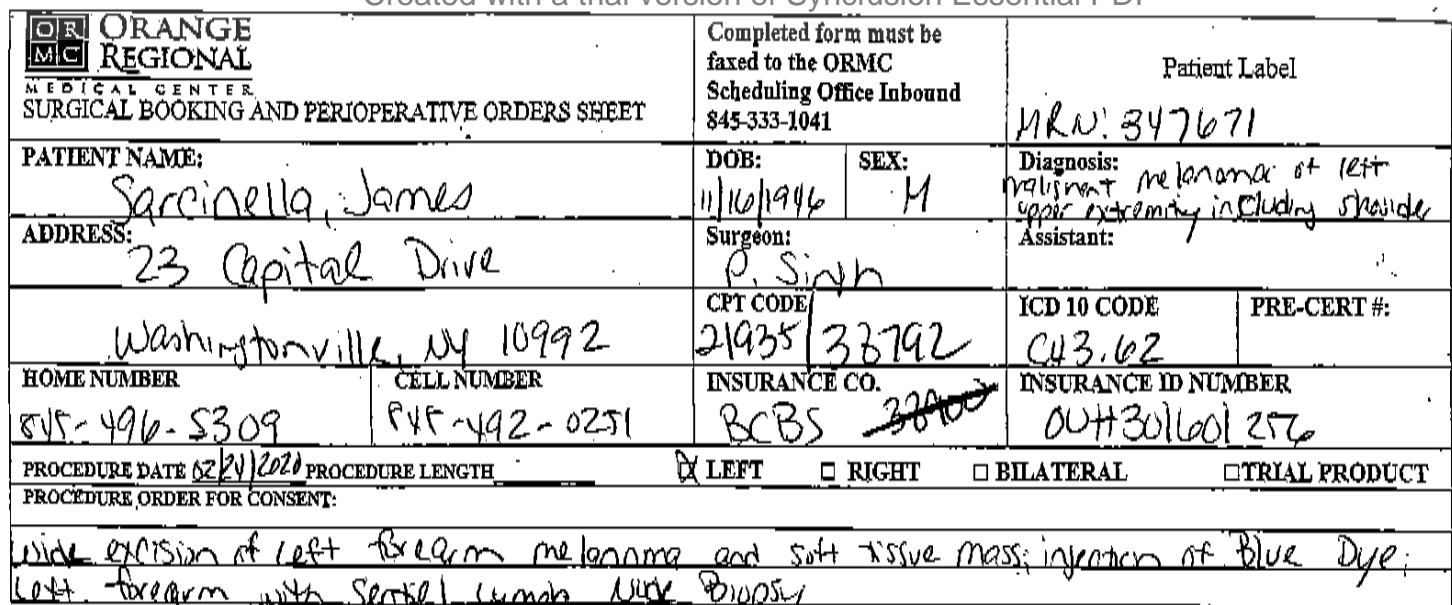 Created with a trial version of Syncfusion Essential PDF
OR MC ORANGE REGIONAL
MEDICAL CENTER
SURGICAL BOOKING AND PERIOPERATIVE ORDERS SHEET
Completed form must be
faxed to the ORMC
Scheduling Office Inbound
845-333-1041
Patient Label
MRN: 347671
PATIENT NAME:
Sarcinella, James
DOB:
11/16/1946
SEX:
M
Diagnosis:
malignant melanoma of left
upper extremity including shoulder
ADDRESS:
23 Capital Drive
Surgeon:
P. Singh
Assistant:
Washingtonville, NY 10992
CPT CODE
21935/38792
ICD 10 CODE
C43.62
PRE-CERT #:
HOME NUMBER
845-496-5309
CELL NUMBER
845-492-0251
INSURANCE CO.
BCBS
INSURANCE ID NUMBER
PROCEDURE DATE 02/24/2020 PROCEDURE LENGTH
☒ LEFT ☐ RIGHT ☐ BILATERAL ☐ TRIAL PRODUCT
PROCEDURE ORDER FOR CONSENT:
wide excision of left forearm melanoma and soft tissue mass; injection of Blue Dye;
Left forearm with Sentinel Lymph Node Biopsy